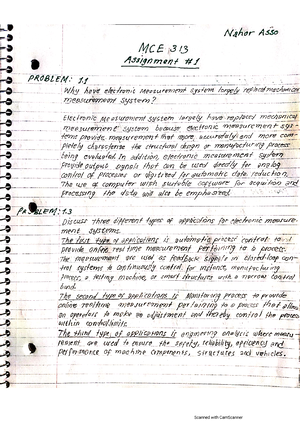 Nahor Asso
MCE 313
Assignment #1
PROBLEM: 1.1
Why have electronic measurement system largely replaced mechanical
measurement system?
Electronic Measurement system largely have replaced mechanical
measurement system because electronic measurement sys-
tems provide measurement that more accurately and more com-
pletely characterize the structural design or manufacturing process
being evaluated. In addition, electronic measurement system
provide output signals that can be used directly for analog
control of processes or digitized for automatic data reduction.
The use of computer with suitable software for acquisition and
processing the data will also be emphasized.
PROBLEM: 1.3
Discuss three different types of applications for electronic measure-
ment systems.
The first type of applications is automatic process control to
provide online real time measurement pertaining to a process.
The measurement are used as feedback signals in closed-loop con-
trol systems to continuously control for instance, manufacturing
process, a testing machine, or smart structures with a narrow control
band.
The second type of applications is Monitoring process to provide
online realtime measurement pertaining to a process that allow
an operators to make an adjustment and thereby control the process
within control limits.
The third type of applications is engineering analysis where measu-
rement are used to ensure the safety, reliability, efficiency and
performance of machine components, structures and vehicles.
Scanned with CamScanner